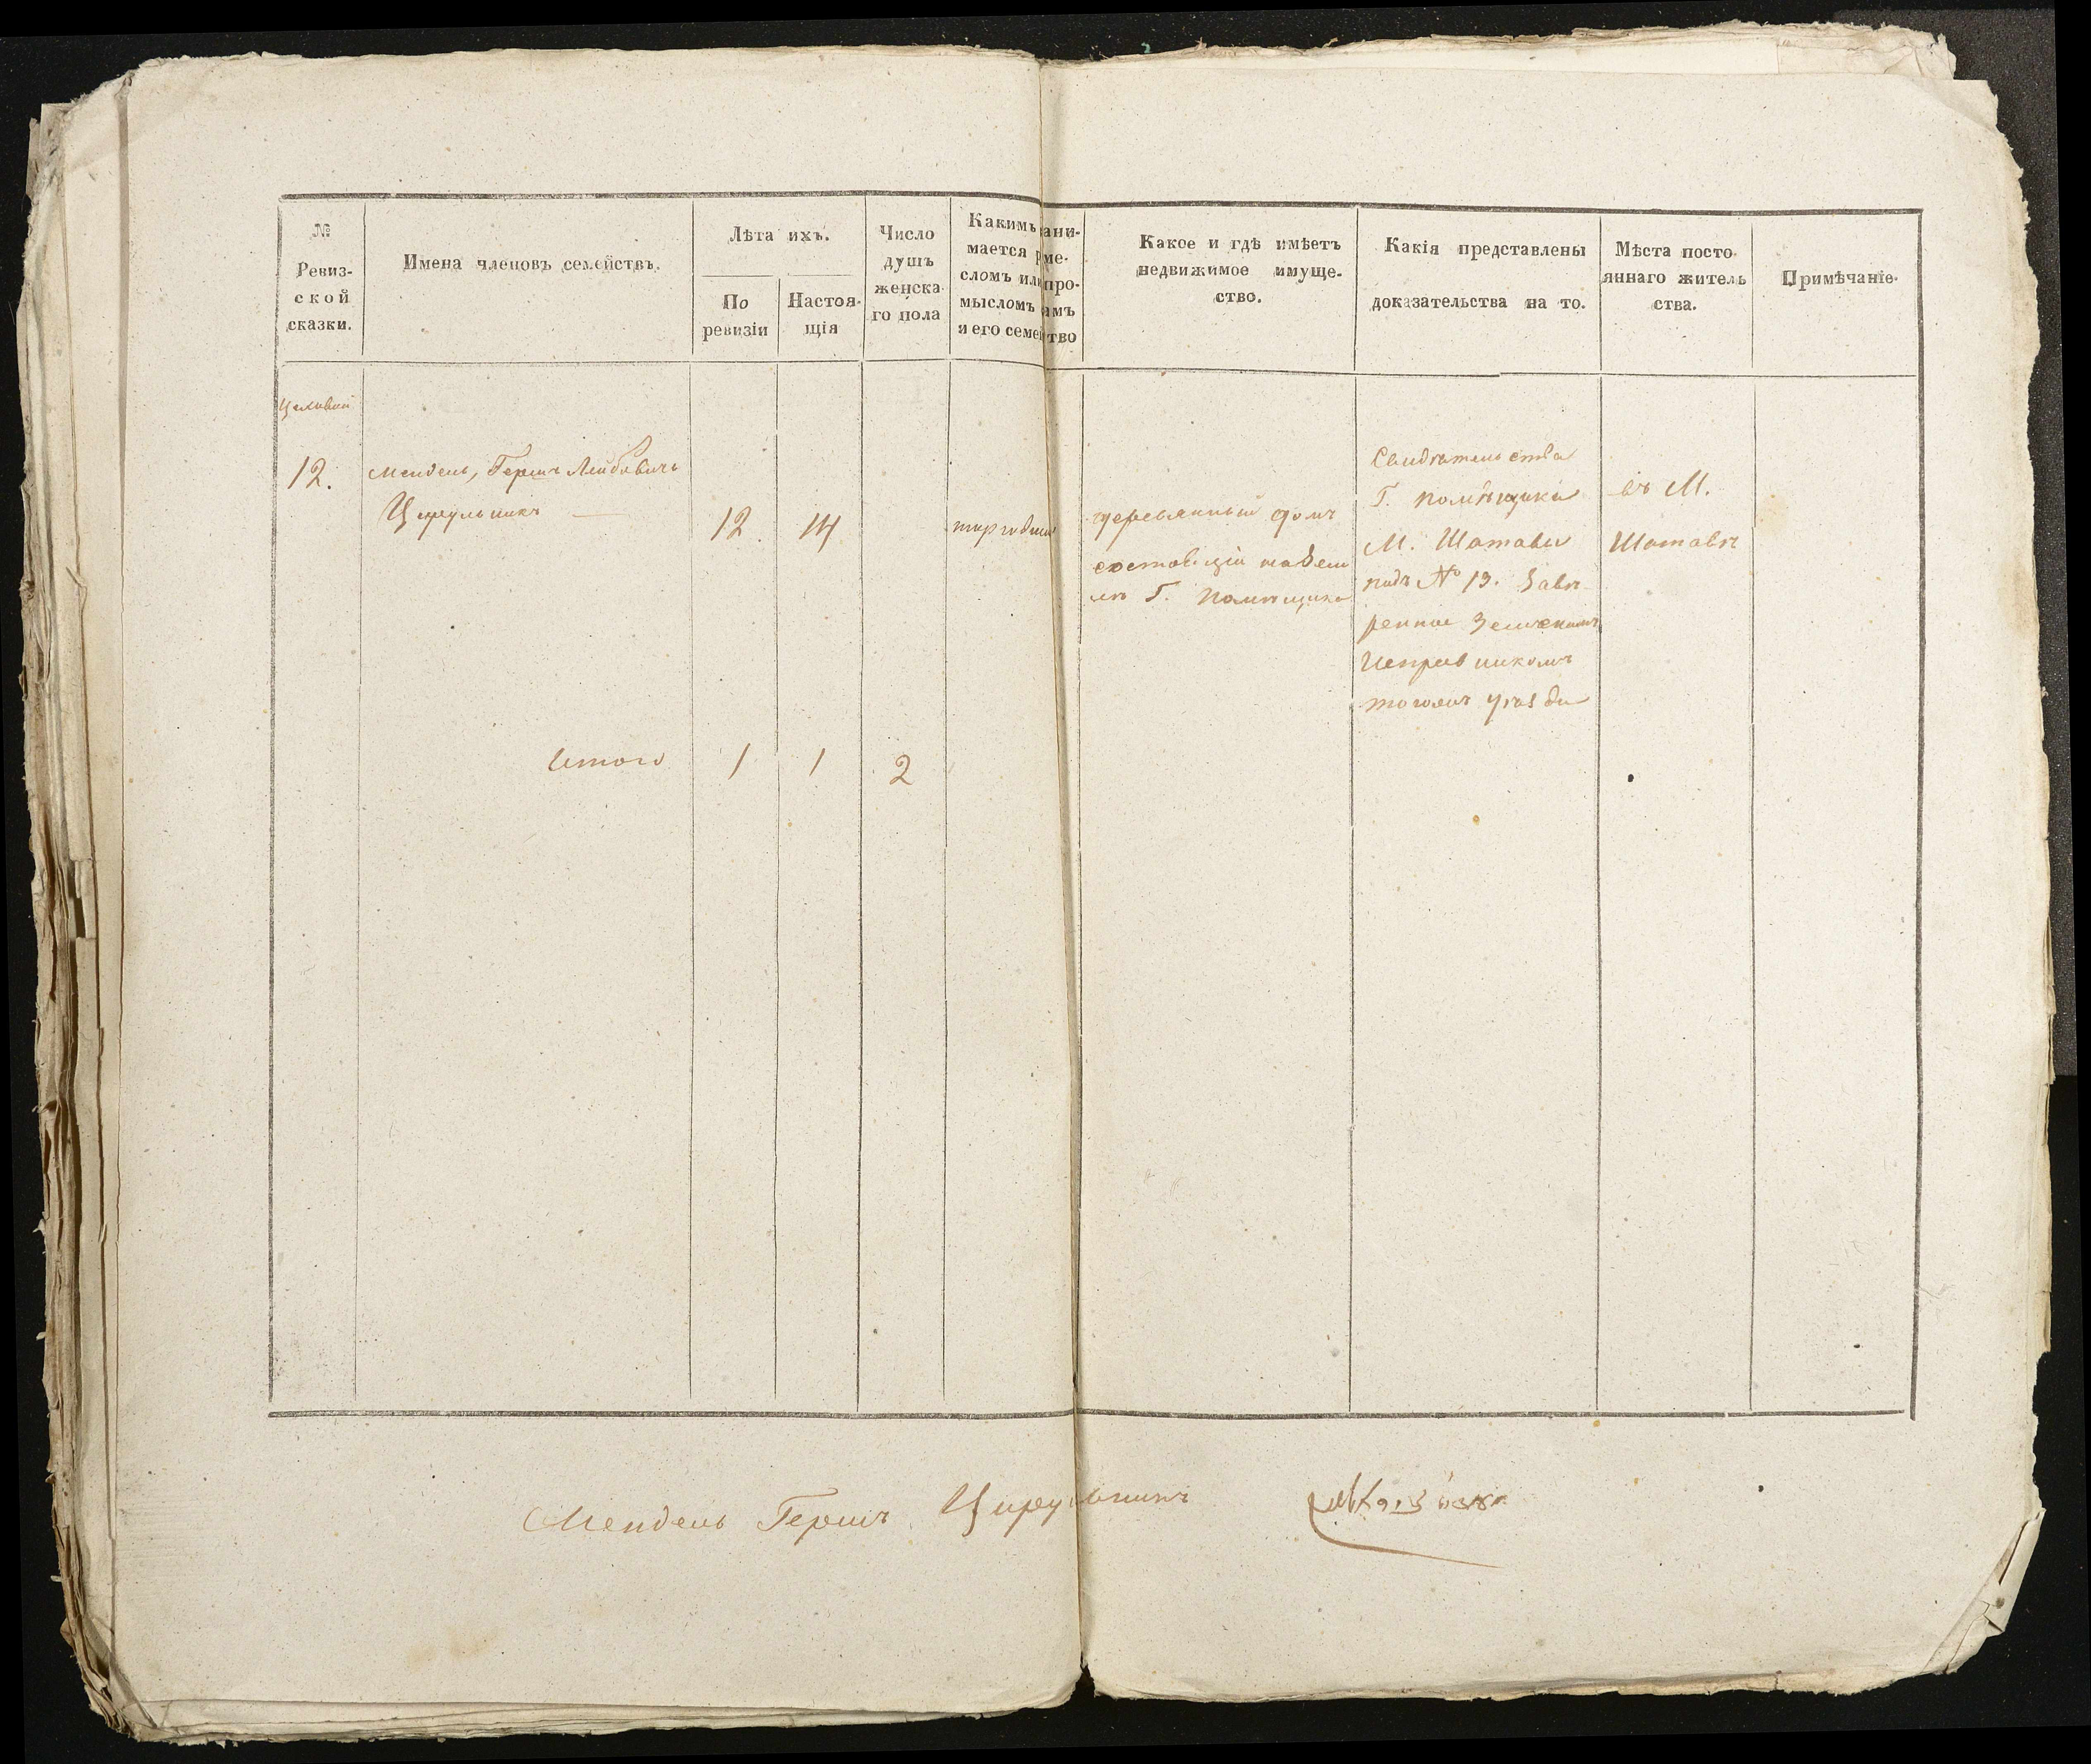 №
Ревиз-
ской
сказки.
Имена членовъ семействъ.
Лѣта ихъ.
По
ревизіи
Настоя-
щія
Число
душъ
женска-
го пола
Какимъ зани-
мается реме-
сломъ или про-
мысломъ самъ
и его семейство
Какое и гдѣ имѣетъ
недвижимое имуще-
ство.
Какія представлены
доказательства на то.
Мѣста посто-
яннаго житель
ства.
Примѣчаніе.
Цеховый
12.
Мендель, Гершъ Лейбовичъ
Цирульникъ
12.
14
деревянный домъ
состоящій на зем
лѣ Г. Помѣщика
Свидѣтельства
Г. помѣщика
М. Шатавы
подъ № 13. Завѣ
ренное Земскимъ
Исправникомъ
тогожъ уѣзда
въ М.
Шатавѣ
Итого
1
1
2
Мендель Гершъ Цирульникъ